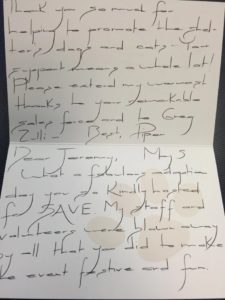 Thank you so much for
helping to promote the shel-
ter's dogs and cats - Your
support means a whole lot!
Please extend my warmest
thanks to your remarkable
sales force and to Greg
Best, Piper
Dear Jeremy, May 5
What a fabulous adoption
day you so kindly hosted
for SAVE. My staff and
volunteers were blown away
by all that you did to make
the event festive and fun.